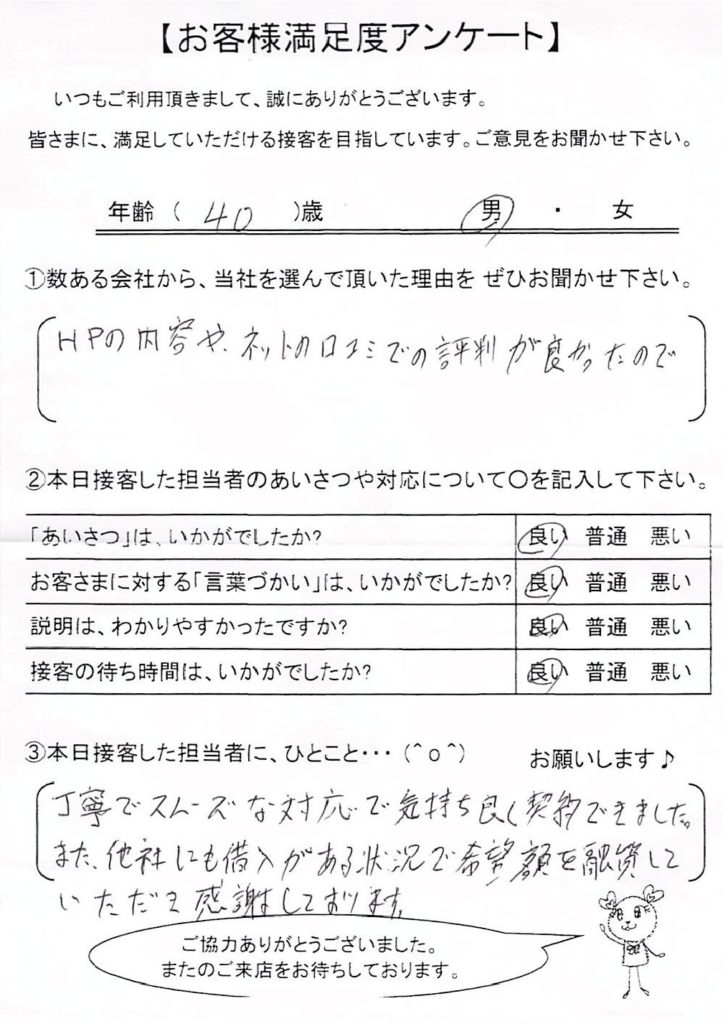 【お客様満足度アンケート】
いつもご利用頂きまして、誠にありがとうございます。
皆さまに、満足していただける接客を目指しています。ご意見をお聞かせ下さい。
年齢 ( 40 )歳 男 ・ 女
①数ある会社から、当社を選んで頂いた理由を ぜひお聞かせ下さい。
HPの内容や、ネットの口コミでの評判が良かったので
②本日接客した担当者のあいさつや対応について〇を記入して下さい。
「あいさつ」は、いかがでしたか? 良い 普通 悪い
お客さまに対する「言葉づかい」は、いかがでしたか? 良い 普通 悪い
説明は、わかりやすかったですか? 良い 普通 悪い
接客の待ち時間は、いかがでしたか? 良い 普通 悪い
③本日接客した担当者に、ひとこと・・・ (^o^) お願いします♪
丁寧でスムーズな対応で気持ち良く契約できました。
また、他社にも借入がある状況で希望額を融資して
いただき感謝しております。
ご協力ありがとうございました。
またのご来店をお待ちしております。